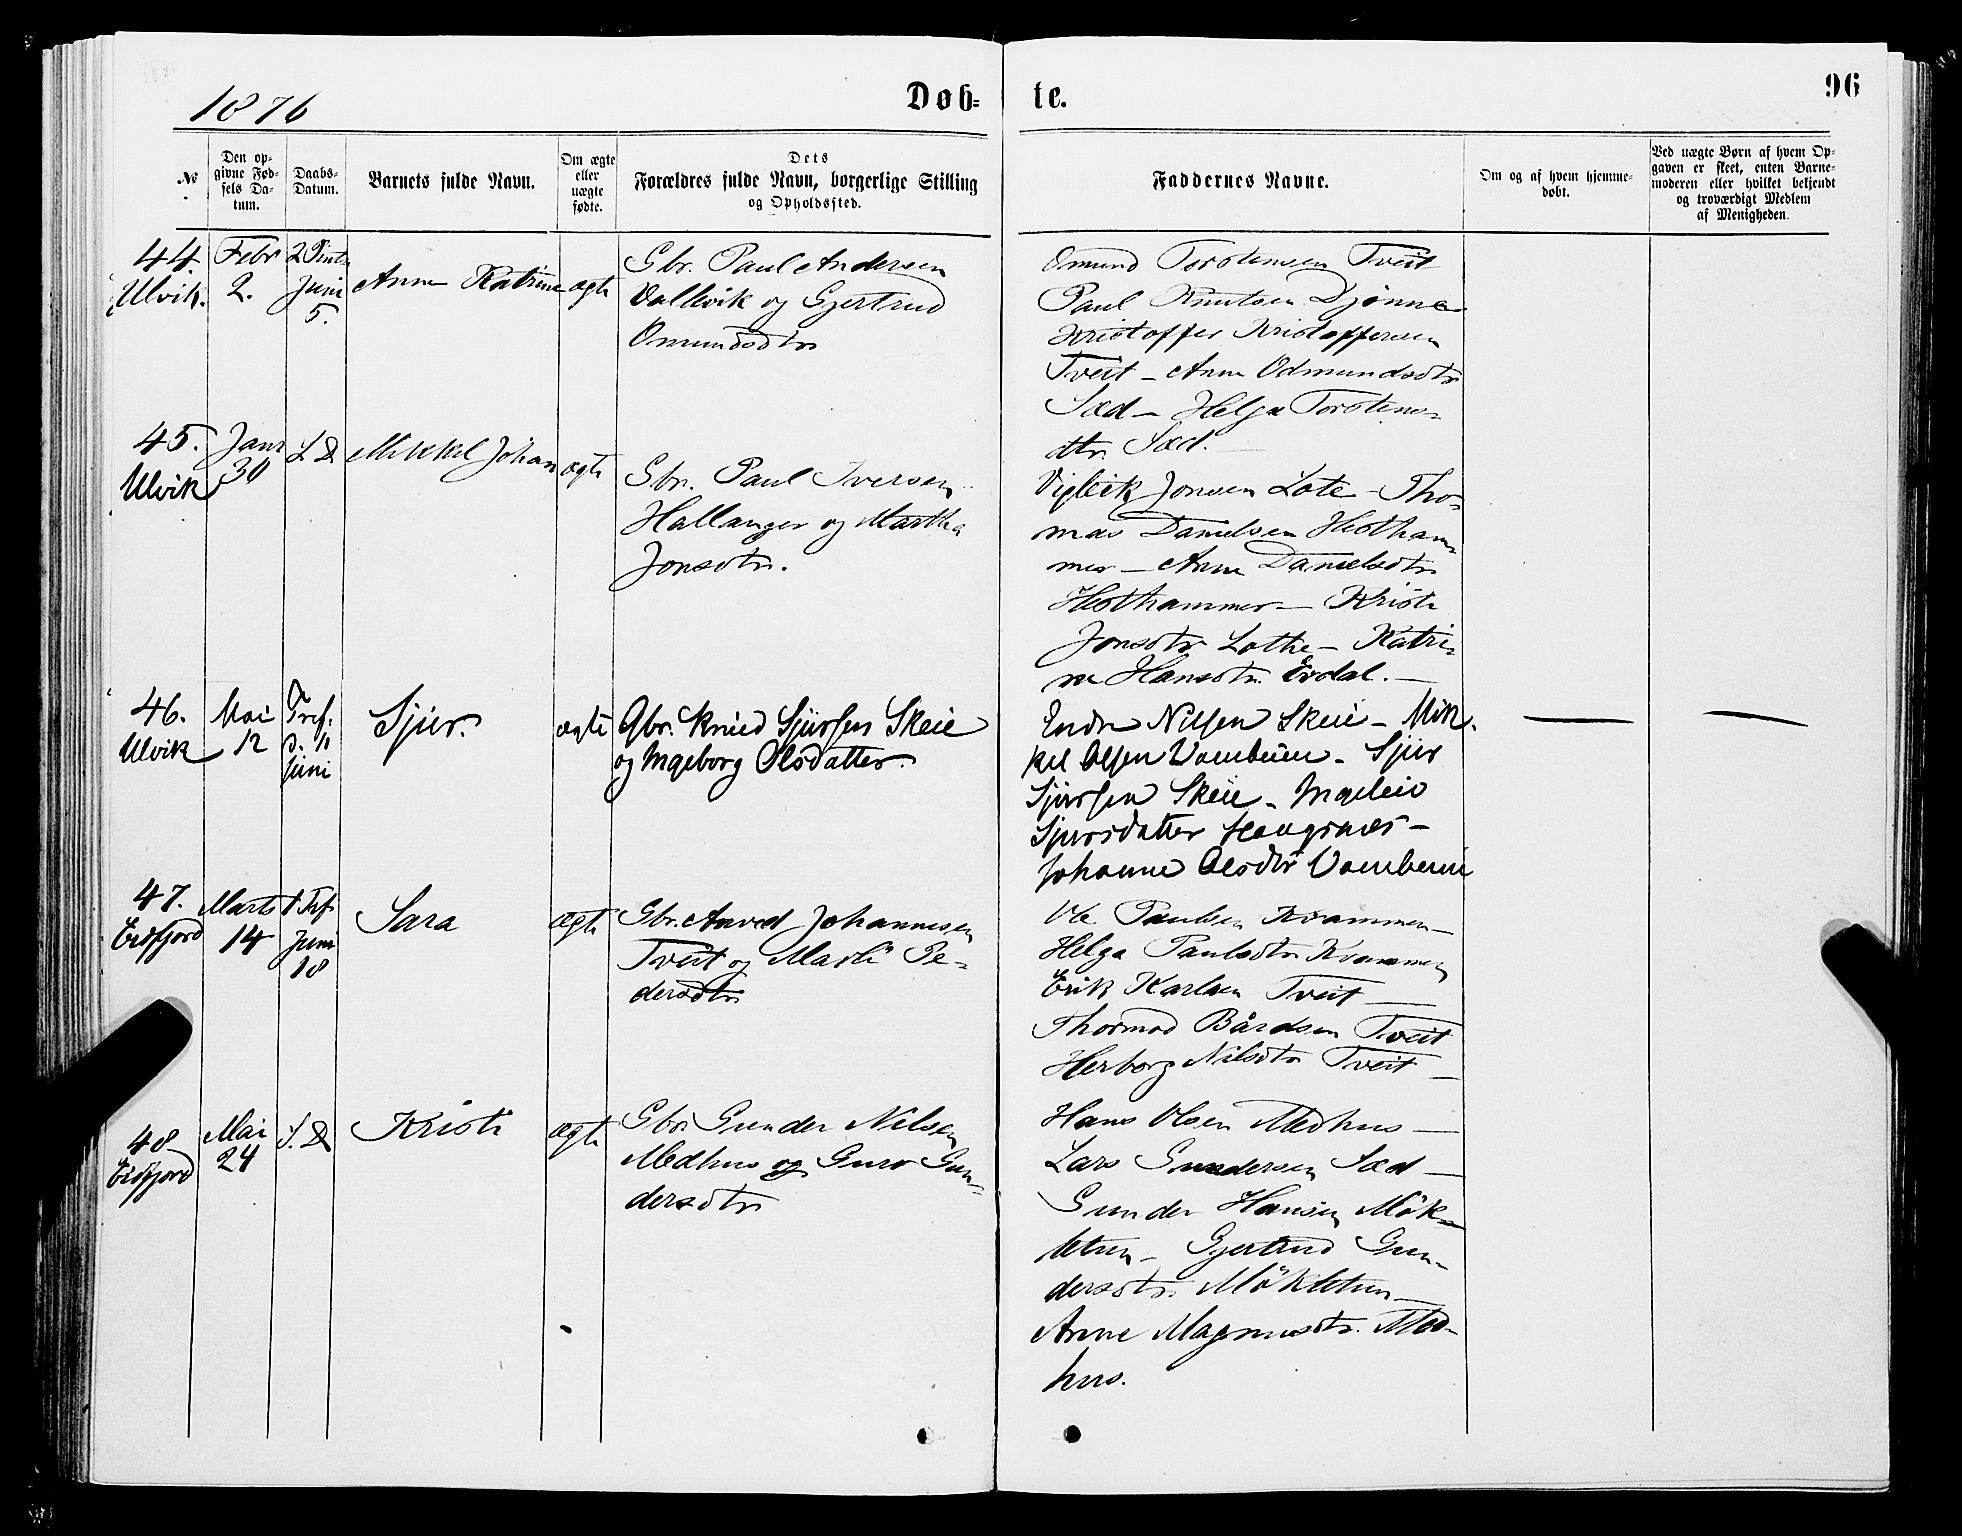 1876
Døb-
te.
96
№
Den op-
givne Fød-
sels Da-
tum.
Daabs-
Datum.
Barnets fulde Navn.
Om ægte
eller
uægte
fødte.
Dets
Forældres fulde Navn, borgerlige Stilling
og Opholdssted.
Faddernes Navne.
Om og af hvem hjemme-
døbt.
Ved uægte Børn af hvem Op-
gaven er skeet, enten Barne-
moderen eller hvilket bekjendt
og troværdigt Medlem
af Menigheden.
44.
Ulvik.
Febr
2.
2 Pints
Juni
5.
Anne Katrine
ægte
Gbr. Paul Andersen
Vallevik og Gjertrud
Omundsdtr
Omund Torstensen Tveit
Paul Knutsen Djønne
Kristoffer Kristoffersen
Tveit - Anne Odmundsdtr
Sæd - Helga Torstens-
dtr. Sæd.
45.
Ulvik
Janr
30
S. D
Mikkel Johan
ægte
Gbr. Paul Iversen
Hallanger og Martha
Jonsdtr.
Vigleik Jonsen Lote - Tho-
mas Danielsen Hestham-
mer - Anne Danielsdtr
Hesthammer - Kristi
Jonsdtr Lothe - Katri-
ne Hansdtr. Erdal. -
46.
Ulvik
Mai
12
Tref.
Juni
Sjur.
ægte
Gbr. Knud Sjursen Skeie
og Ingeborg Olsdatter.
Endre Nilsen Skeie - Mik-
kel Olsen Vambeim - Sjur
Sjursen Skeie -
Sjursdatter Haugsnes -
Johanne Olsdtr Vambeim
47.
Eidfjord
Marts
14
1 Tref
Juni
18
Sara
ægte
Gbr. Anved Johannesen
Tveit og Marti Pe-
dersdtr
Ole Paulsen Kvammen -
Helga Paulsdtr Kvammen
Erik Karlsen Tveit -
Thormod Bårdsen Tveit
Herborg Nilsdtr Tveit -
48
Eidfjord
Mai
24
S. D
Kristi
ægte
Gbr. Gunder Nilsen
Medhus og Guro Gun-
dersdtr
Hans Olsen Medhus -
Lars Gundersen Sæd -
Gunder Hansen Møk-
letun - Gjertrud Gun-
dersdtr. Møkletun -
Anne Magnusdtr. Med-
hus.